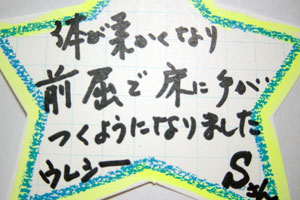 体が柔かくなり
前屈で床に手が
つくようになりました
ウレシー
Sさん